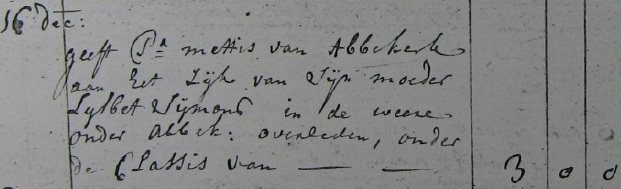 16 dec:
geeft Pr mettis van Abbekerk
aan het Lijk van Sijn moeder
Lysbet Sijmons in de weere
onder Abbek: overleden, onder
de Classis van — — 3 0 0